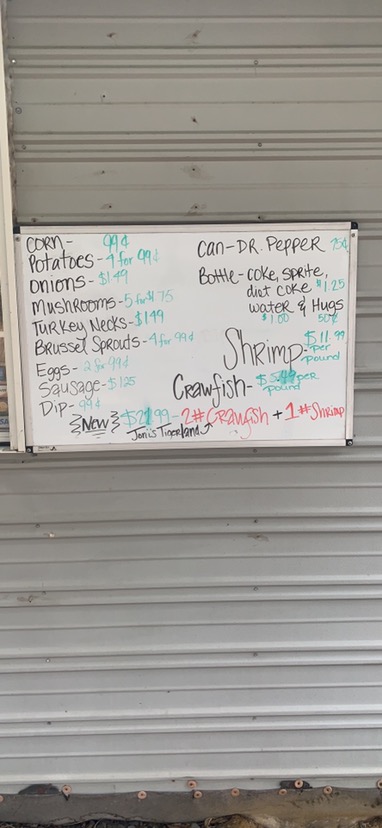 Corn- 99¢
Potatoes- 4 for 99¢
Onions- $1.49
Mushrooms- 5 for $1.75
Turkey Necks- $1.49
Brussel Sprouts- 4 for 99¢
Eggs- 2 for 99¢
Sausage- $1.25
Dip- 99¢
Can- DR. Pepper 75¢
Bottle- coke, sprite,
diet coke $1.25
water & Hugs
$1.00 50¢
Shrimp- $11.99 per pound
Crawfish- $5.49 per pound
New $21.99- 2# Crawfish + 1# Shrimp
Joni's Tigerland